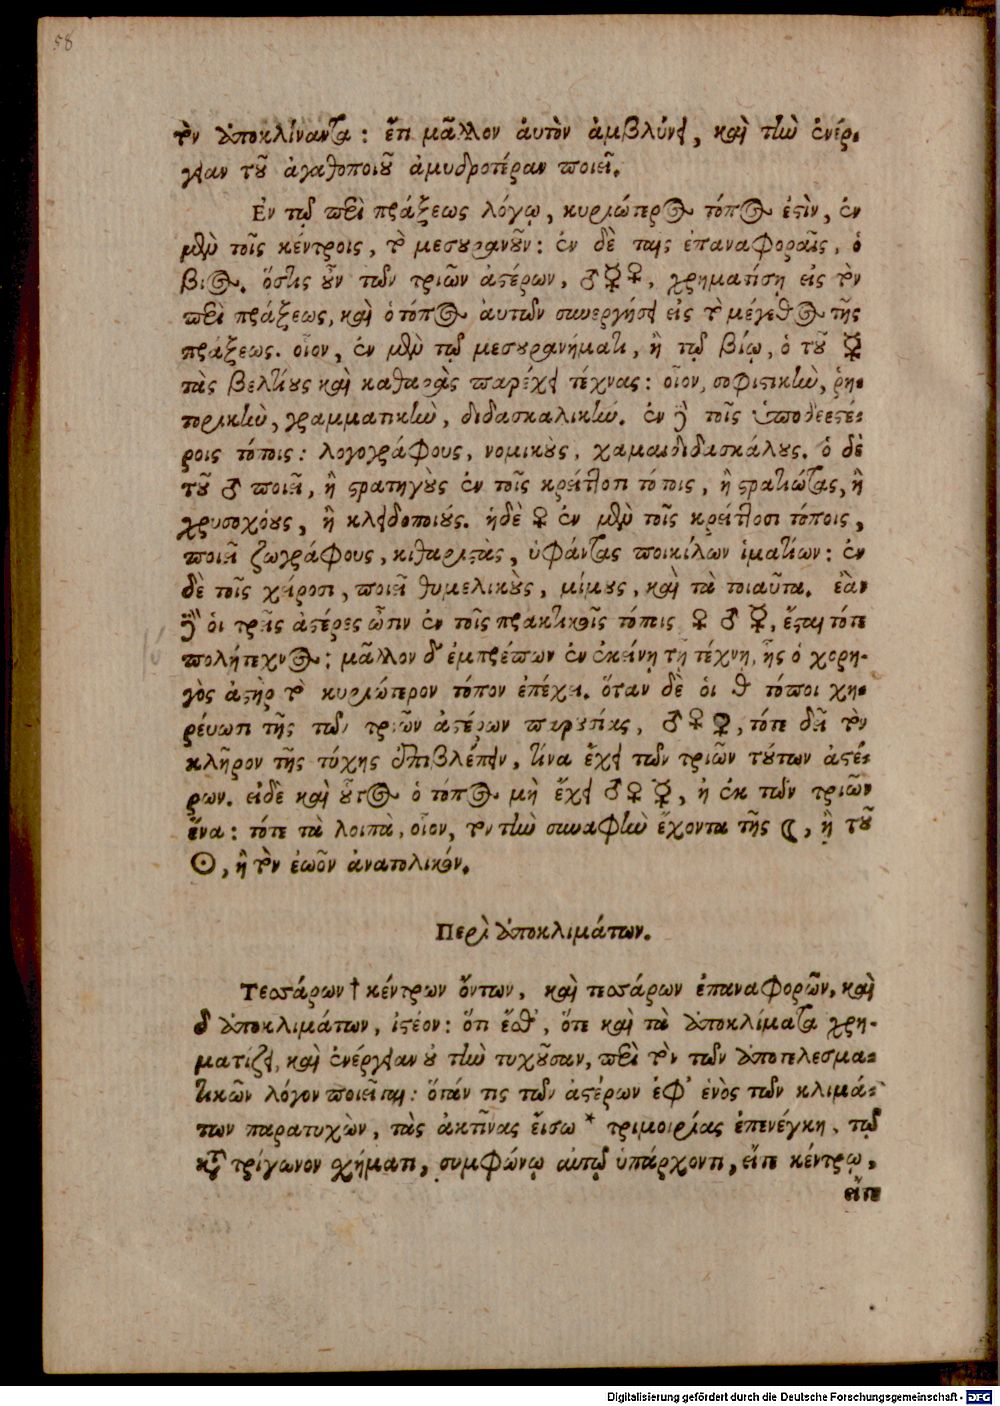 58
τὸν ἀποκλίναντα: ἔτι μᾶλλον ἀυτὸν ἀμβλύνει, καὶ τὴν ἐνέρ-
γειαν τοῦ ἀγαθοποιοῦ ἀμυδροτέραν ποιεῖ.
Ἐν τῷ περὶ πράξεως λόγῳ, κυριώτερος τόπος ἐστὶν, ἐν
μὲν τοῖς κέντροις, τὸ μεσουρανοῦν: ἐν δὲ ταῖς ἐπαναφοραῖς, ὁ
βιος. ὅστις οὖν τῶν τριῶν ἀστέρων, ♂☿♀, χρηματίση εἰς τὸν
περὶ πράξεως, καὶ ὁ τόπος ἀυτῶν συνεργήσει εἰς τὸ μέγεθος τῆς
πράξεως. οἷον, ἐν μὲν τῷ μεσουρανήματι, ἢ τῷ βίῳ, ὁ τοῦ ☿
τὰς βελτίους καὶ καθαρὰς παρέχει τέχνας: οἷον, σοφιστικὴν, ῥη-
τορικὴν, γραμματικὴν, διδασκαλικὴν. ἐν δὲ τοῖς ὑποδεεστέ-
ροις τόποις: λογογράφους, νομικοὺς, χαμαιδιδασκάλους. ὁ δὲ
τοῦ ♂ ποιεῖ, ἢ στρατηγοὺς ἐν τοῖς κρείττοσι τόποις, ἢ στρατιώτας, ἢ
χρυσοχόους, ἢ κλειδοποιούς. ἡδὲ ♀ ἐν μὲν τοῖς κρείττοσι τόποις,
ποιεῖ ζωγράφους, κιθαριστὰς, ὑφάντας ποικίλων ἱματίων: ἐν
δὲ τοῖς χείροσι, ποιεῖ θυμελικοὺς, μίμους, καὶ τὰ τοιαῦτα. ἐὰν
δὲ οἱ τρεῖς ἀστέρες ὦσιν ἐν τοῖς πρακτικοῖς τόποις ♀ ♂ ☿, ἔσται τότε
πολύτεχνος: μᾶλλον δ' ἐμπρέπων ἐν ἐκείνη τῇ τέχνη, ἧς ὁ χορη-
γὸς ἀστὴρ τὸ κυριώτερον τόπον ἐπέχει. ὅταν δὲ οἱ θ τόποι χη-
ρέυωσι τῆς τῶν τριῶν ἀστέρων παρουσίας, ♂♀☿, τότε δεῖ τὸν
κλῆρον τῆς τύχης ἐπιβλέπειν, τίνα ἔχει τῶν τριῶν τούτων ἀστέ-
ρων. εἰδὲ καὶ οὗτος ὁ τόπος μὴ ἔχει ♂♀☿, ἢ ἐκ τῶν τριῶν
ἕνα: τότε τὰ λοιπὰ, οἷον, τὸν τὴν συναφὴν ἔχοντα τῆς ☾, ἢ τοῦ
☉, ἢ τὸν ἑῶον ἀνατολικόν.
Περὶ ἀποκλιμάτων.
Τεσσάρων † κέντρων ὄντων, καὶ τεσσάρων ἐπαναφορῶν, καὶ
δ ἀποκλιμάτων, ἰστέον: ὅτι ἔσθ', ὅτε καὶ τὰ ἀποκλίματα χρη-
ματίζει, καὶ ἐνέργειαν οὐ τὴν τυχοῦσαν, περὶ τὸν τῶν ἀποτελεσμα-
τικῶν λόγον ποιεῖται: ὅταν τις τῶν ἀστέρων ἐφ' ἑνὸς τῶν κλιμά-
των παρατυχὼν, τὰς ἀκτῖνας εἴσω * τριμοιρίας ἐπενέγκη, τῷ
κατὰ τρίγωνον σχήματι, συμφώνῳ αὐτῷ ὑπάρχοντι, εἴτε κέντρῳ,
εἴτε
Digitalisierung gefördert durch die Deutsche Forschungsgemeinschaft - DFG